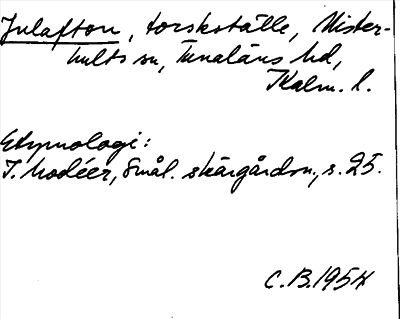 Julafton, torskställe, Mister-
hults sn, Tunaläns hd,
Kalm. l.
Etymologi:
I. Modéer, Smål. skärgårdsn., s. 25.
C.B. 1954